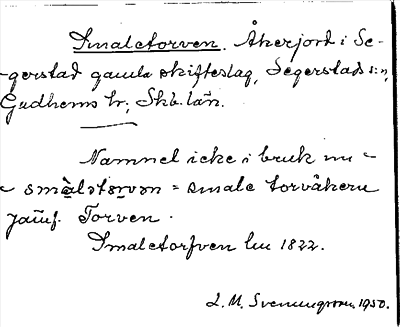 Smaletorven. Åkerjord i Se-
gerstad gamla skifteslag, Segerstads s:n,
Gudhems hr; Skb. län.
Namnet icke i bruk nu -
- småletorvən = smale torvåkern
jämf. Torven.
Smaletorfven lm 1822.
L. M. Svenungsson 1950.